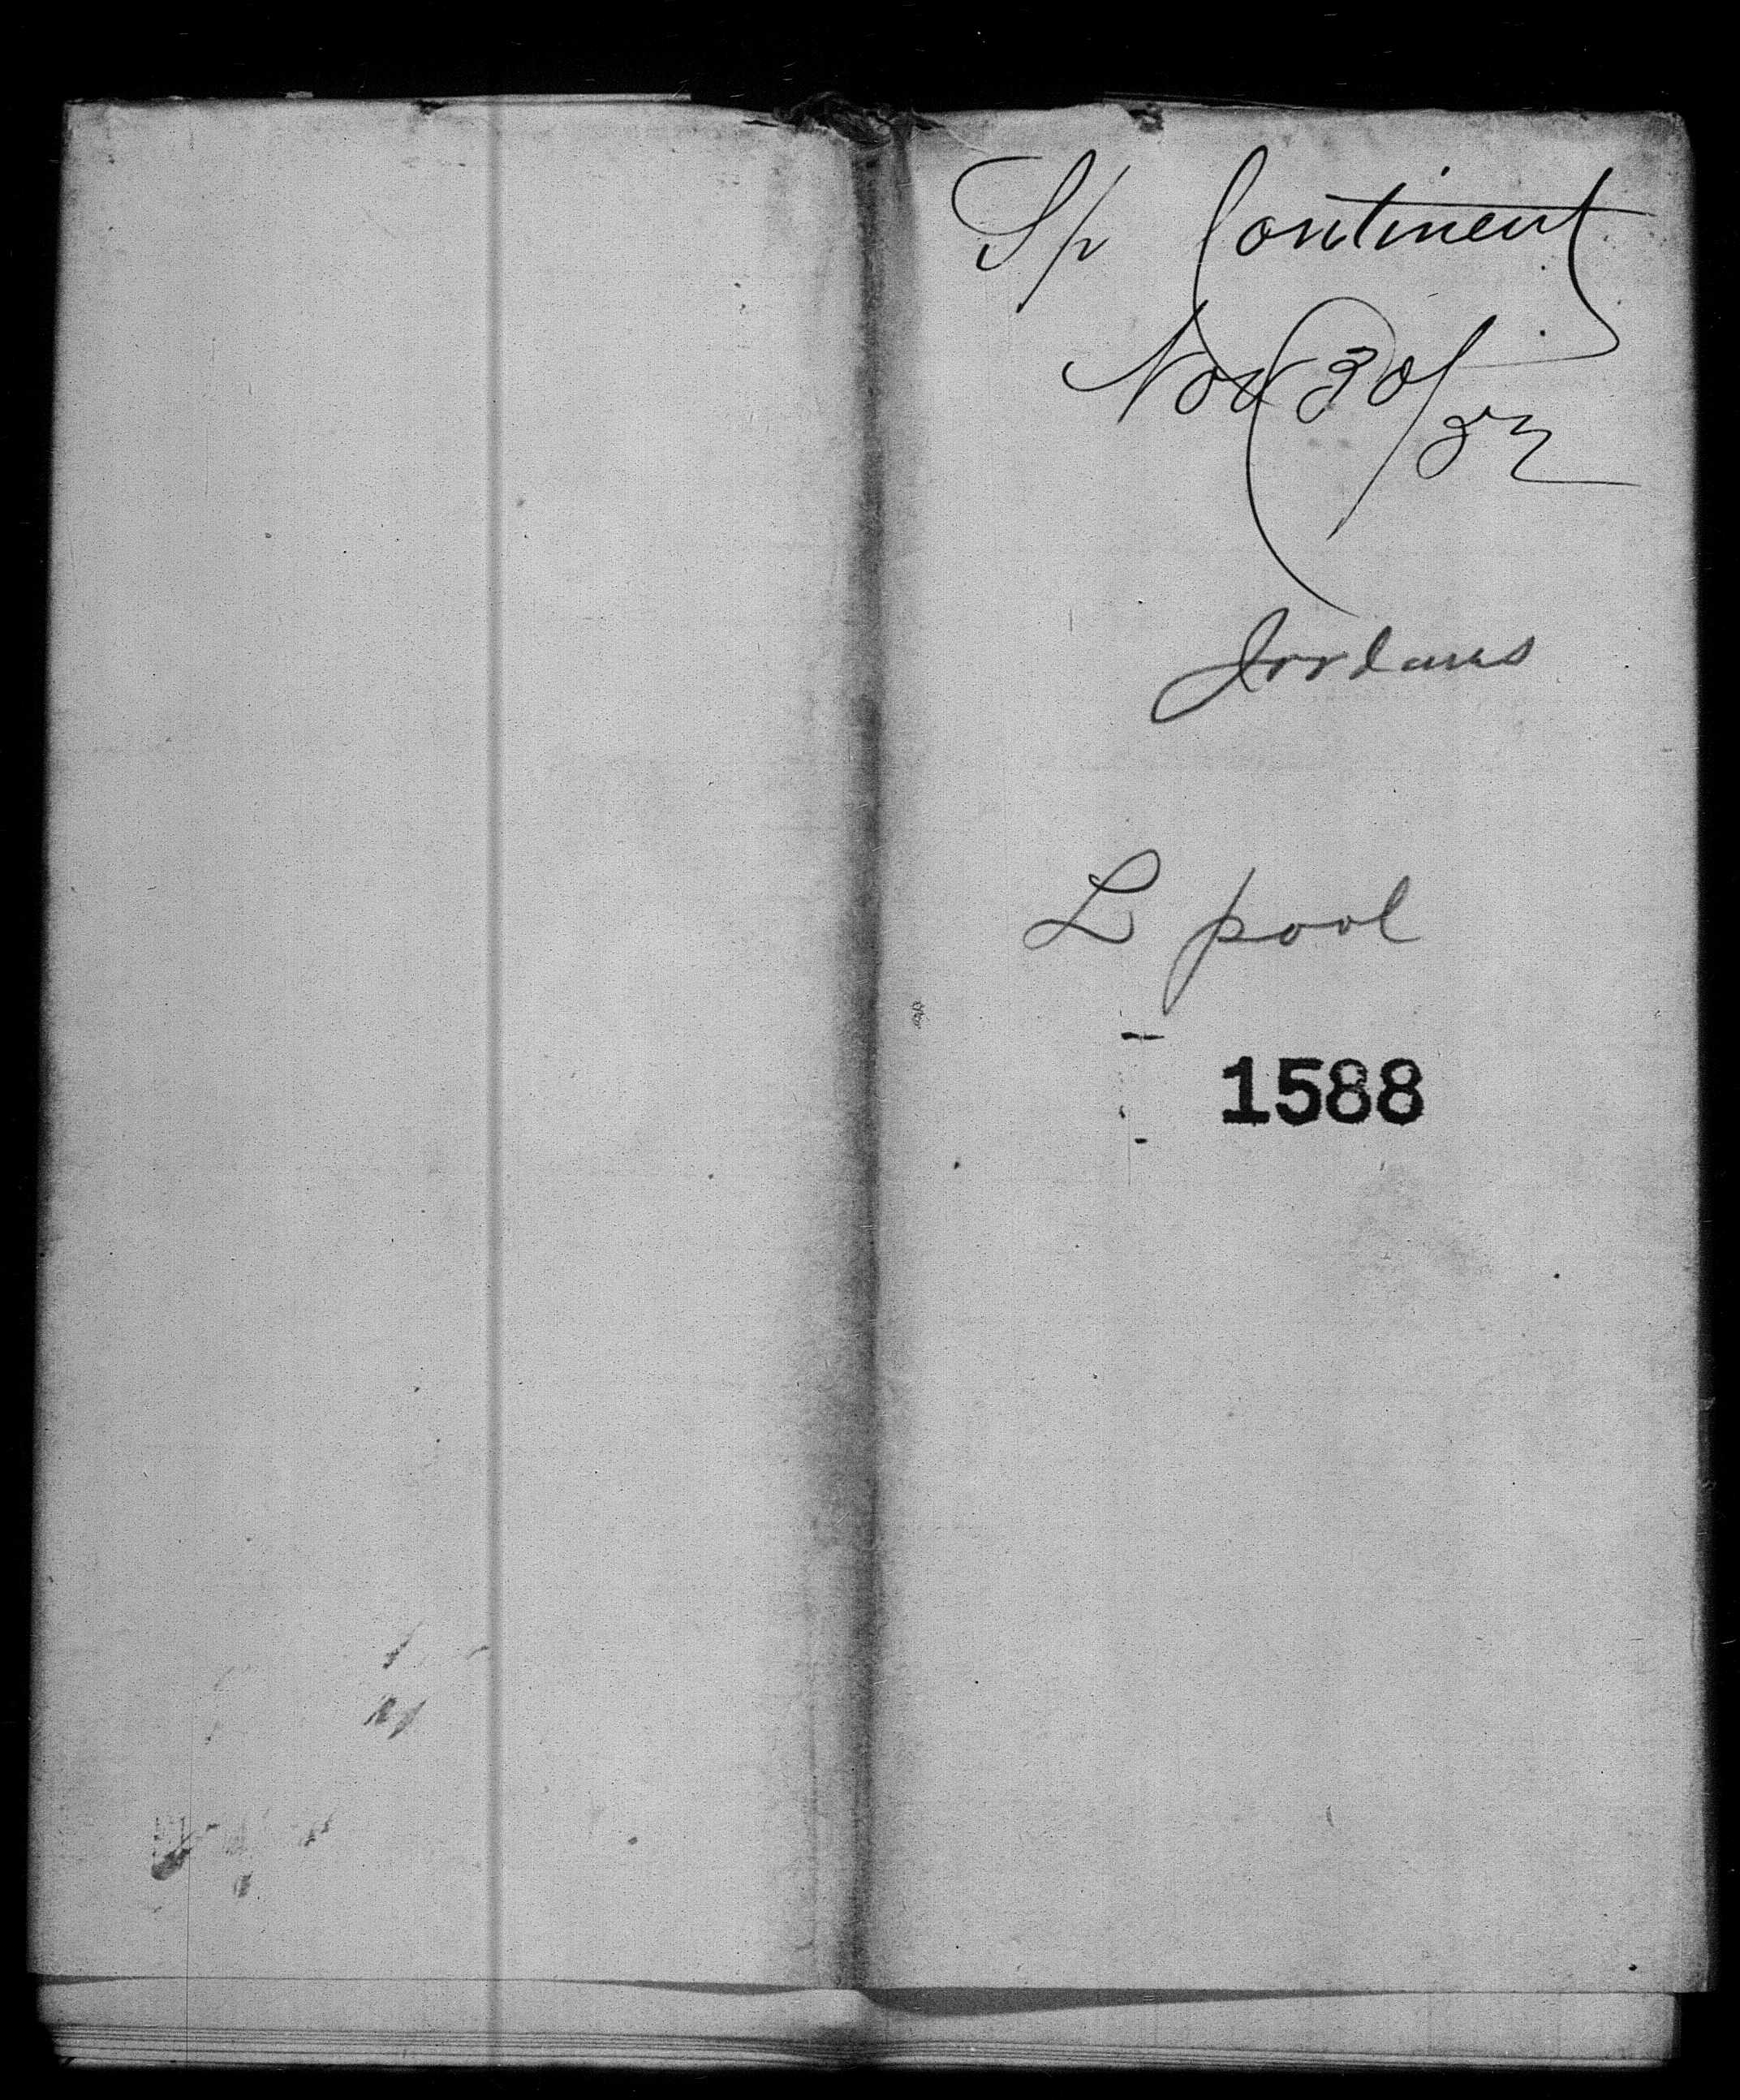 Sp Continent
Nov 30/52
Jordans
L pool
1588